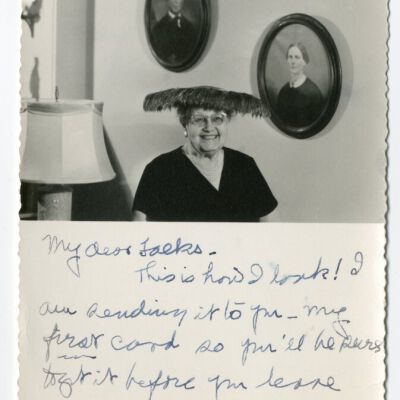 My dear Folks -
This is how I look! I
am sending it to you - my
first card so you'll be sure
to get it before you leave